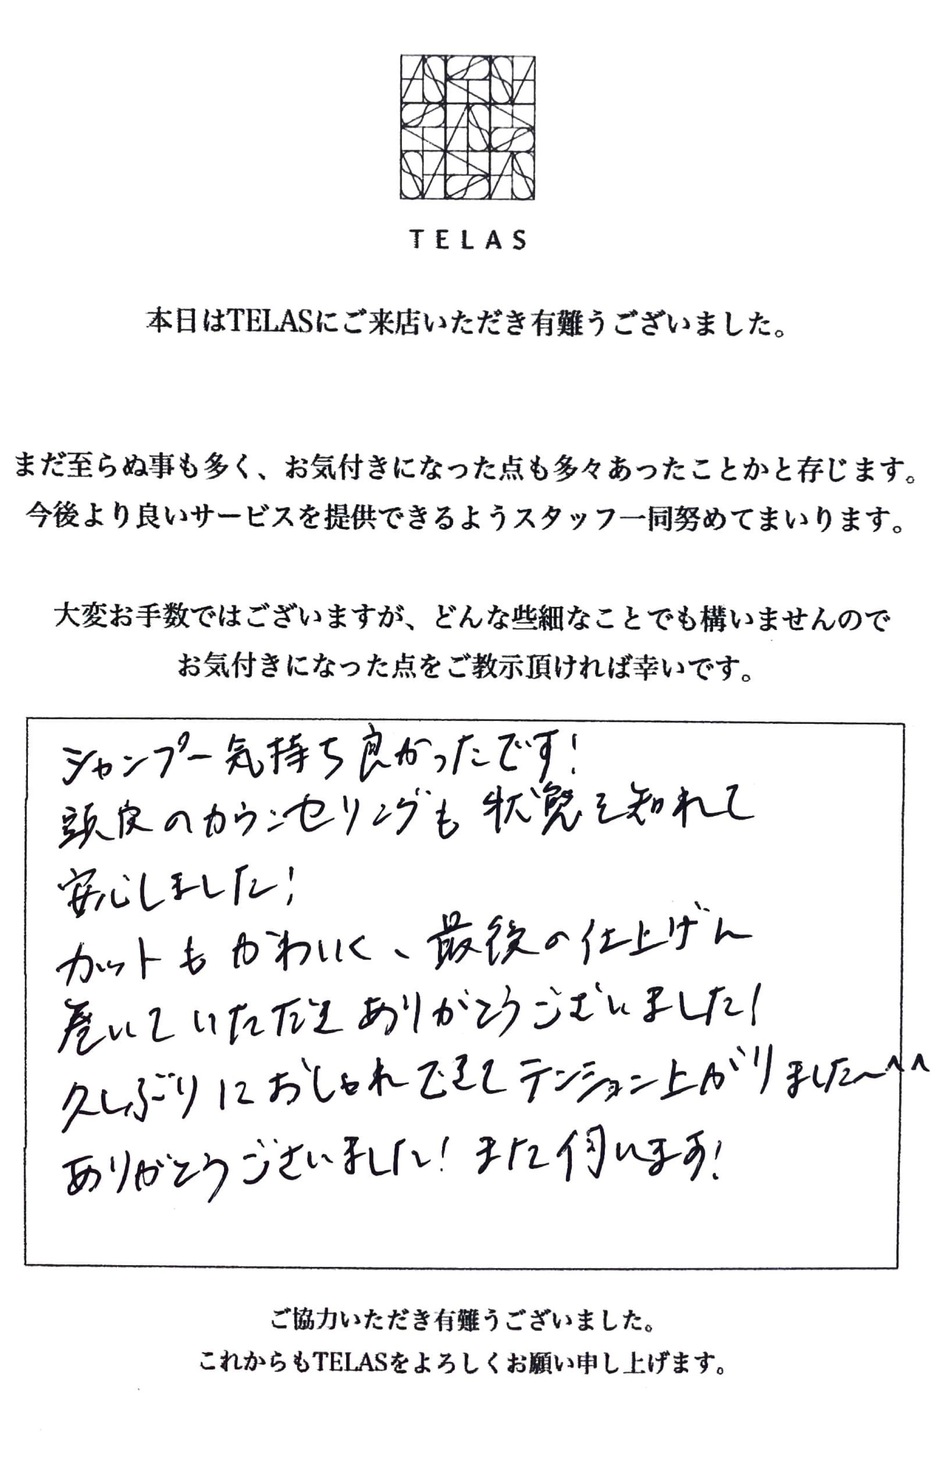 TELAS
本日はTELASにご来店いただき有難うございました。
まだ至らぬ事も多く、お気付きになった点も多々あったことかと存じます。
今後より良いサービスを提供できるようスタッフ一同努めてまいります。
大変お手数ではございますが、どんな些細なことでも構いませんので
お気付きになった点をご教示頂ければ幸いです。
シャンプー気持ち良かったです!
頭皮のカウンセリングも状態を知れて
安心しました!
カットもかわいく、最後の仕上げに
巻いていただきありがとうございました!
久しぶりにおしゃれできてテンション上がりました〜^^
ありがとうございました!また伺います!
ご協力いただき有難うございました。
これからもTELASをよろしくお願い申し上げます。